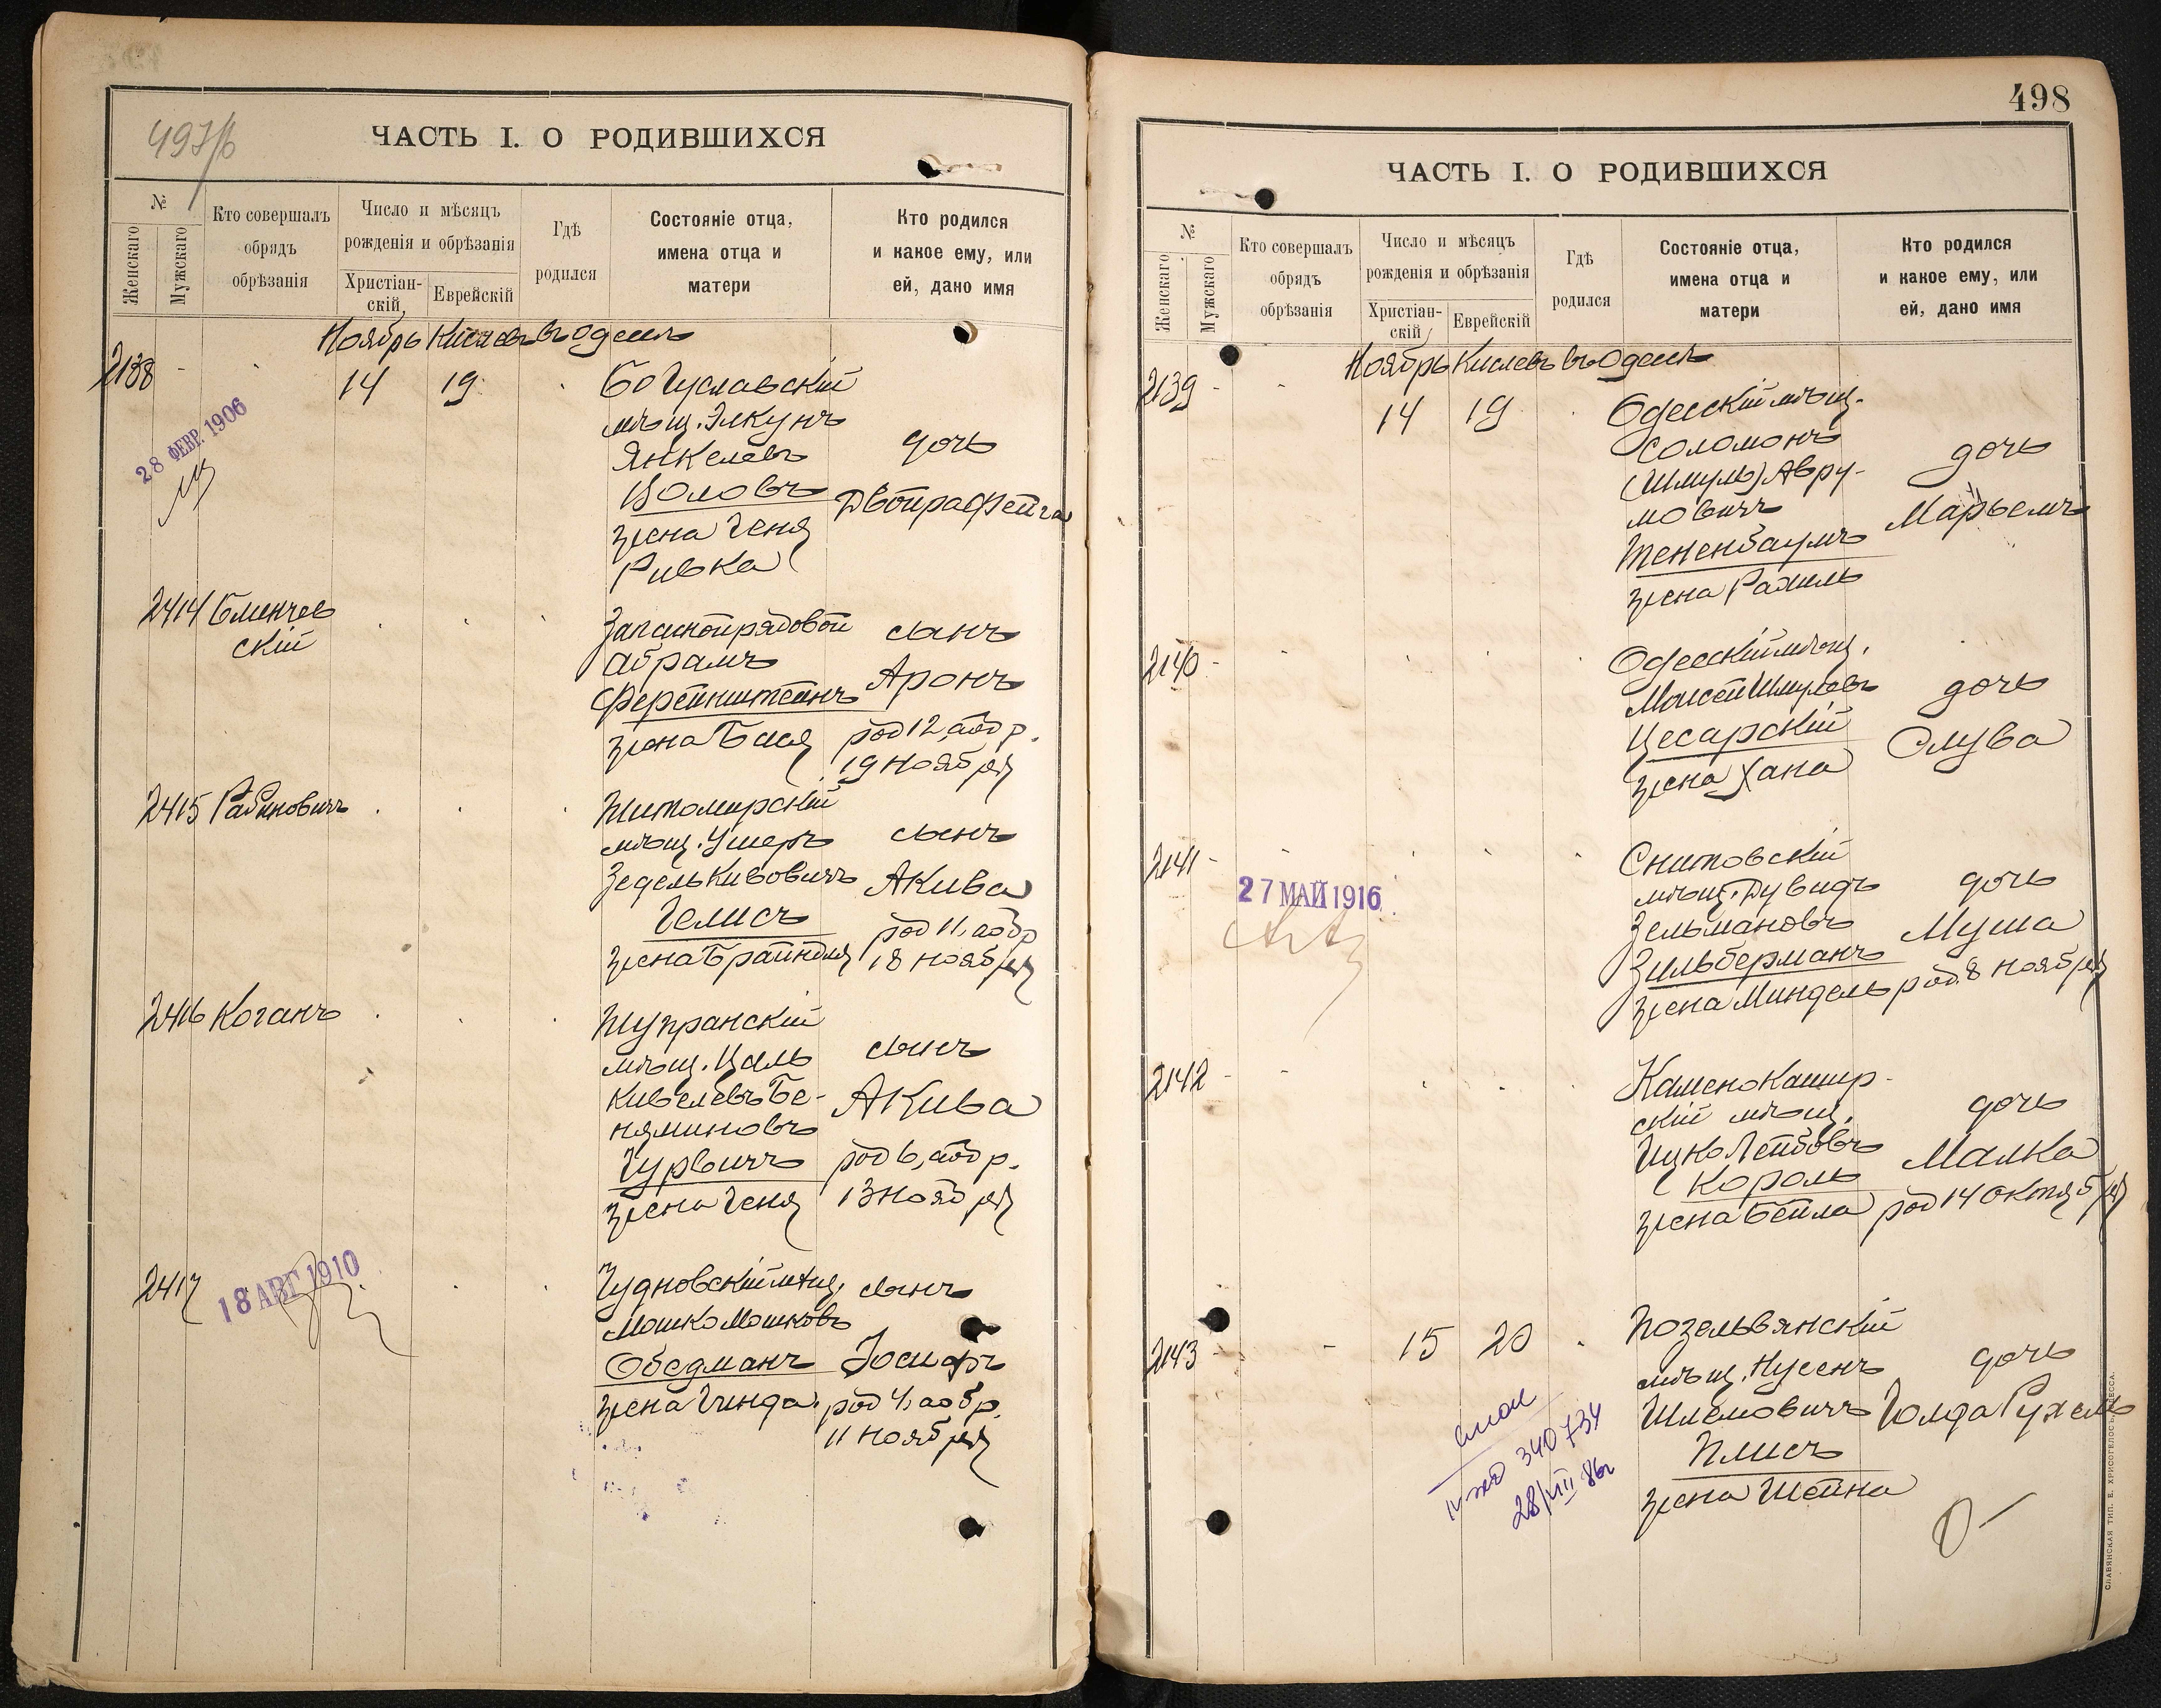 497/б
ЧАСТЬ I. О РОДИВШИХСЯ
№
Женскаго
Мужскаго
Кто совершалъ
обрядъ
обрѣзанія
Число и мѣсяцъ
рожденія и обрѣзанія
Христіан-
скій
Еврейскій
Гдѣ
родился
Состояніе отца,
имена отца и
матери
Кто родился
и какое ему, или
ей, дано имя
Ноябрь Кислевъ въ Одессѣ
2138 - 14 19
28 ФЕВР. 1906
Богуславскій
мѣщ. Элкунъ
Янкелевъ
Воловъ
жена Геня
Ривка
дочь
Двойра Фейга
2414 Бменчев
скій
Запасной рядовой
Абрамъ
Ферейнштейнъ
жена Бася
сынъ
Аронъ
род 12, а обр.
19 ноября
2415 Рабиновичъ
Житомирскій
мѣщ. Ушеръ
Зедель Кивовичъ
Гелисъ
жена Брайндля
сынъ
Акива
род 11, а обр
18 ноября
2416 Коганъ
Шупранскій
мѣщ. Цаль
Кивелевъ Бе-
няминовъ
Гурвичъ
жена Геня
сынъ
Акива
род 6, а обр.
13 ноября
2417
18 АВГ 1910
Чудновскій мѣщ.
Мошко Мошковъ
Обедманъ
жена Гинда.
сынъ
Іосифъ
род 4, а обр.
11 ноября
498
ЧАСТЬ I. О РОДИВШИХСЯ
№
Женскаго
Мужскаго
Кто совершалъ
обрядъ
обрѣзанія
Число и мѣсяцъ
рожденія и обрѣзанія
Христіан-
скій
Еврейскій
Гдѣ
родился
Состояніе отца,
имена отца и
матери
Кто родился
и какое ему, или
ей, дано имя
Ноябрь Кислевъ въ Одессѣ
2139 - - 14 19
Одесскій мѣщ.
Соломонъ
(Шмуль) Авру-
мовичъ
Тененбаумъ
жена Рахиль
дочь
Марьемъ
2140 -
Одесскій мѣщ.
Моисей Шмулевъ
Цесарскій
жена Хана
дочь
Слува
2141 -
27 МАЙ 1916
Снитовскій
мѣщ. Дувидъ
Зельмановъ
Зильберманъ
жена Миндель
дочь
Муша
род. 8 ноября
2142 -
Камено Кашир-
скій мѣщ.
Ицко Лейбовъ
Король
жена Бейла
дочь
Малка
род 14 октября
2143 - - 15 20
Позельвянскій
мѣщ. Нусенъ
Шлемовичъ
Плисъ
жена Шейна
дочь
Голда Рухель
IV жо 340734
28/VIII 86г
СЛАВЯНСКАЯ ТИП. Е. ХРИСОГЕЛОСЪ, ОДЕССА.